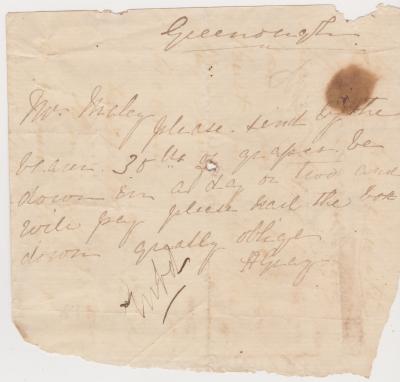 Greenough
Mr. 
please send by the
bearer 30 lbs of grapes be
down in a day or two and
will pay please nail the box
down greatly oblige
A Gray